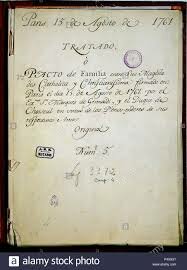 Paris 15 de Agosto de 1761
TRATADO,
ò
PACTO de Familia entre sus Magdes
Catholica y Christianissima firmado en
Paris el dia 15 de Agosto de 1761 por el
Exmo Sr Marques de Grimaldi, y el Duque de
Choiseul en virtud de los Plenos poderes de sus
respectivos Amos
Original
Num. 5
3372
a
alamy stock photo